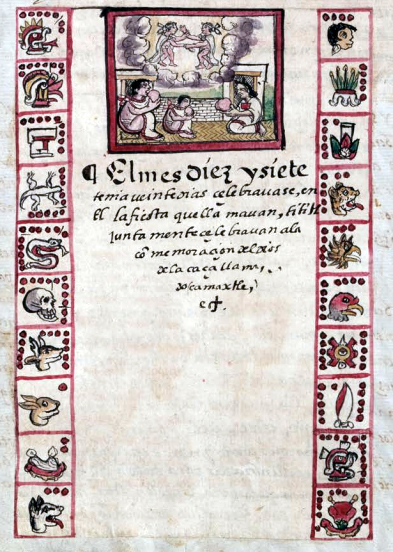 ¶ El mes díez y siete
tenia veinte dias çelebravase, en
El la fiesta que llamavan, tititl
Junta mente çelebravan a la
cõmemoraçion del dios
de la caça llama,
do camaxtle,